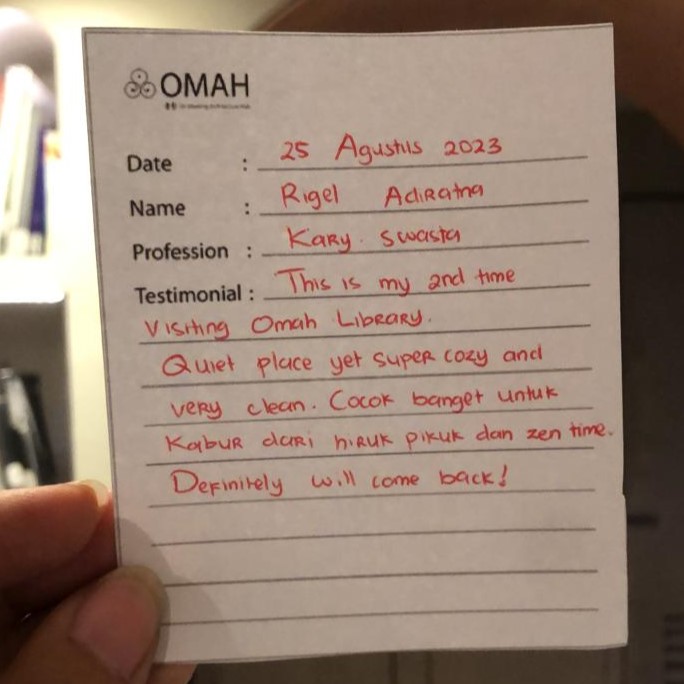 OMAH
Date : 25 Agustus 2023
Name : Rigel Adiratna
Profession : Kary. Swasta
Testimonial : This is my 2nd time
Visiting Omah Library.
Quiet place yet super cozy and
very clean. Cocok banget untuk
Kabur dari hiruk pikuk dan zen time.
Definitely will come back!